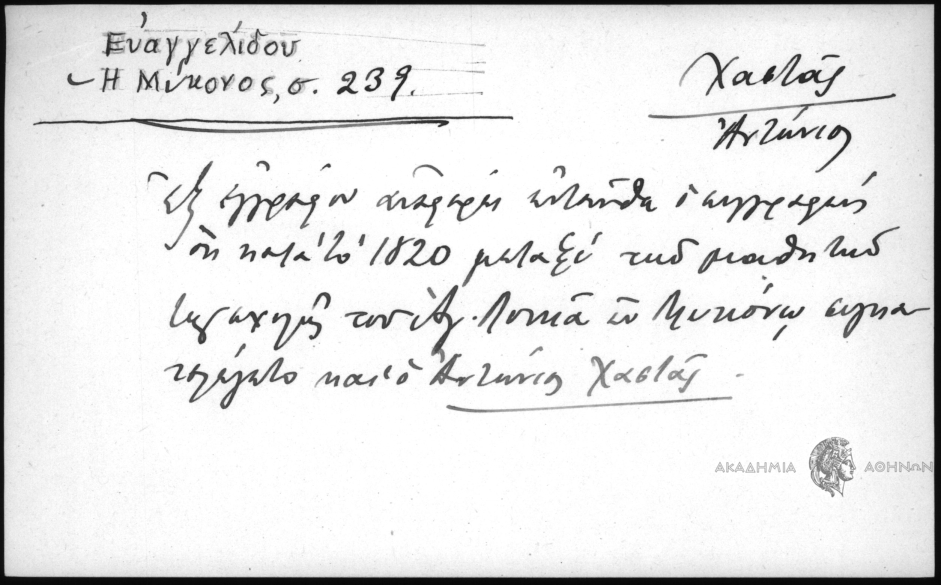 Εὐαγγελίδου
Ἡ Μύκονος, σ. 239.
Χαστᾶς
Ἀντώνιος
Ἐξ ἐγγράφου ἀναφέρει ἐνταῦθα ὁ συγγραφεὺς
ὅτι κατὰ τὸ 1820 μεταξὺ τῶν μαθητῶν
τῆς σχολῆς τοῦ Ἁγ. Λουκᾶ ἐν Μυκόνῳ συγκα-
τελέγετο καὶ ὁ Ἀντώνιος Χαστᾶς.
ΑΚΑΔΗΜΙΑ ΑΘΗΝΩΝ